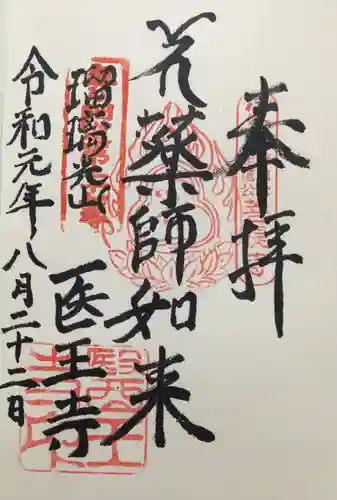 奉拝
薬師如来
瑠璃光山
医王寺
令和元年八月二十二日